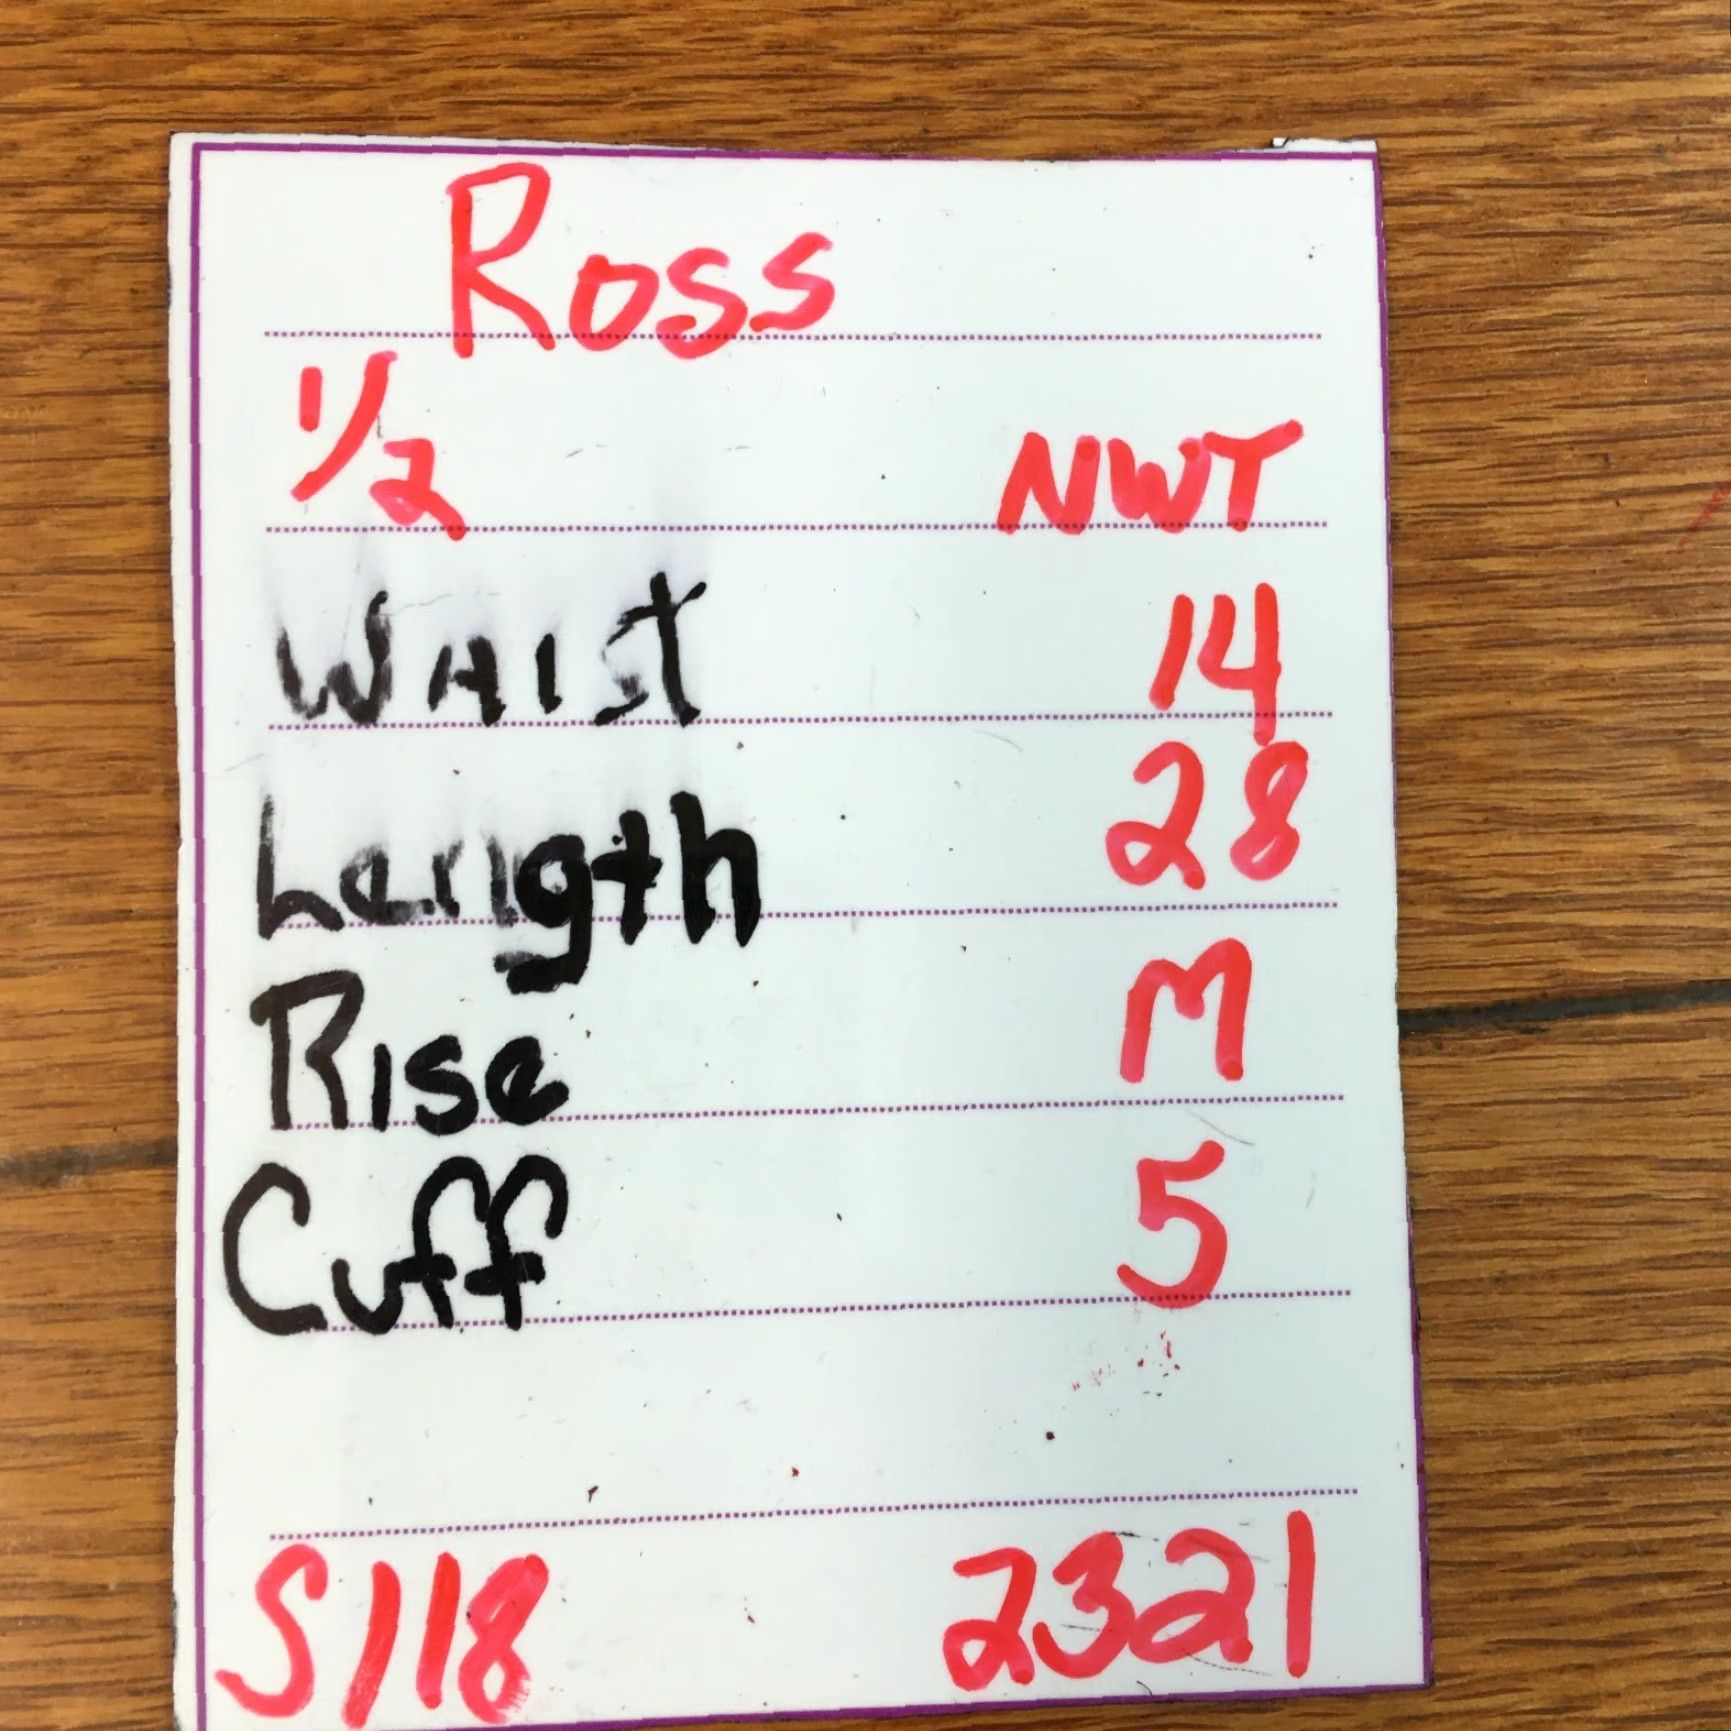 Ross
1/2 NWT
WAIST 14
Length 28
Rise M
Cuff 5
S118 2321